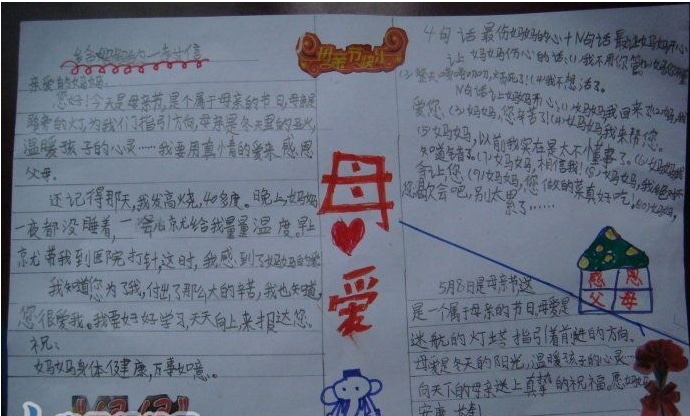 给妈妈的一封信
亲爱的妈妈:
您好!今天是母亲节,是个属于母亲的节日,母爱是
的灯,为我们指引方向,母亲是冬天里的
温暖孩子的心灵……我要用真情的爱来感恩
父母。
还记得那天,我发高烧,40多度。晚上妈妈
一夜都没睡着,一会儿就给我量量温度。早上
就带我到医院打针,这时,我感到了妈妈的爱
我知道您为了我,付出了那么大的辛苦,我也知道,
您很爱我。我要好好学习,天天向上,来报达您。
祝:
妈妈身体健康,万事如意。
母亲节快乐
母
爱
4句话最伤妈妈的心+N句话最让妈妈开心
让妈妈伤心的话:(1)我不用你管
(4)我不想活了。
N句话让妈妈开心:(1)妈妈我回来了(2)妈妈,我
爱您。(3)妈妈,您辛苦了!(4)妈妈,我来帮您。
(5)妈妈,以前我实在是太不懂事了。(6)妈妈,我
知道错了。(7)妈妈,相信我!(8)妈妈,我
会让您 (9)妈妈,您做的菜真好吃。(10)妈妈,
您歇会吧,别太累了……
感恩
父母
5月8日是母亲节,这
是一个属于母亲的节日,母爱是
迷航的灯塔指引着前进的方向。
母爱是冬天的阳光,温暖孩子的心灵
向天下的母亲送上真挚的祝福。愿
安康